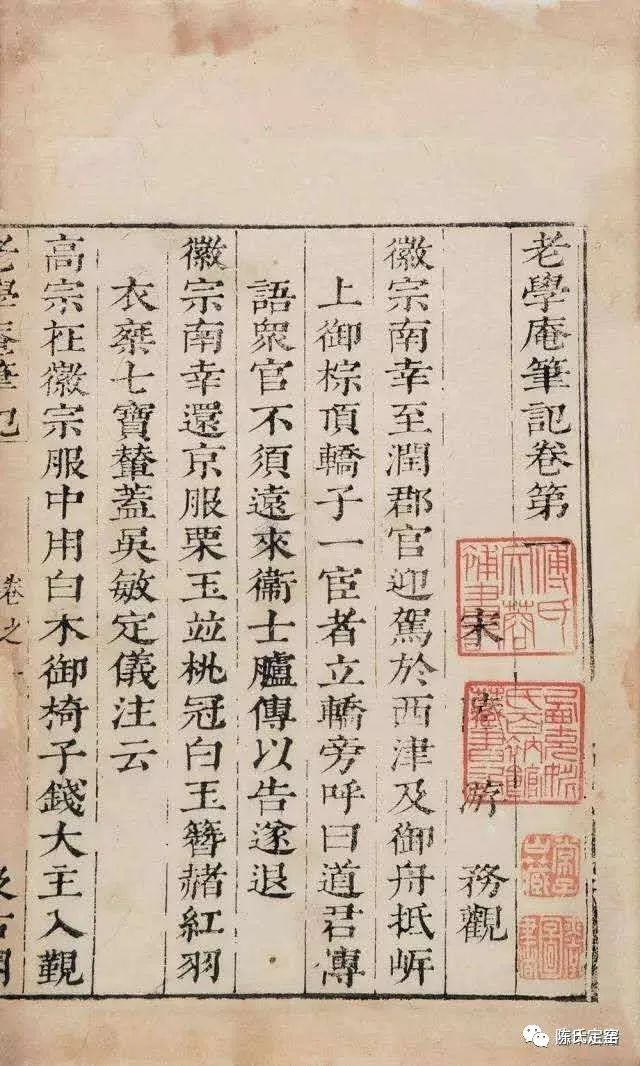 老學庵筆記卷第一
宋 陸游 務觀
徽宗南幸至潤郡官迎駕於西津及御舟抵岍
上御棕頂轎子一宦者立轎旁呼曰道君傳
語衆官不須遠來衞士臚傳以告遂退
徽宗南幸還京服栗玉並桃冠白玉簪赭紅羽
衣乘七寶輦蓋吳敏定儀注云
高宗在徽宗服中用白木御椅子錢大主入覲
老學庵筆記
卷之一
汲古閣
陈氏定窑